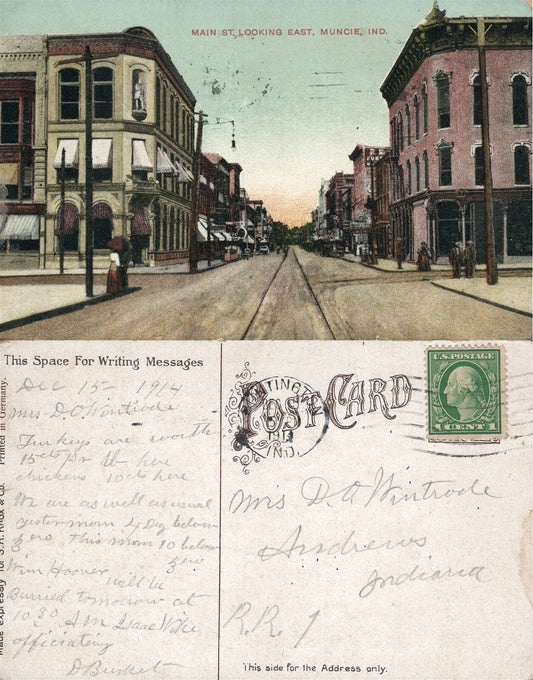 MAIN ST, LOOKING EAST, MUNCIE, IND.
This Space For Writing Messages
Dec 15 1914
Mrs D.O. Wintrode
Turkeys are worth
15cts per lb here
chickens 10cts here
We are as well as usual
yester morn 4 Dg below
zero This morn 10 below
zero
Wm Hoover
will be
Burried tomorrow at
10.30 AM Isaac Wike
officiating
D Burket
Printed in Germany.
Made expressly for S.A. Knox & Co.
POST CARD
IND.
U.S. POSTAGE
1 CENT 1
Mrs D.O. Wintrode
Andrews
Indiana
R.R. 1
This side for the Address only.